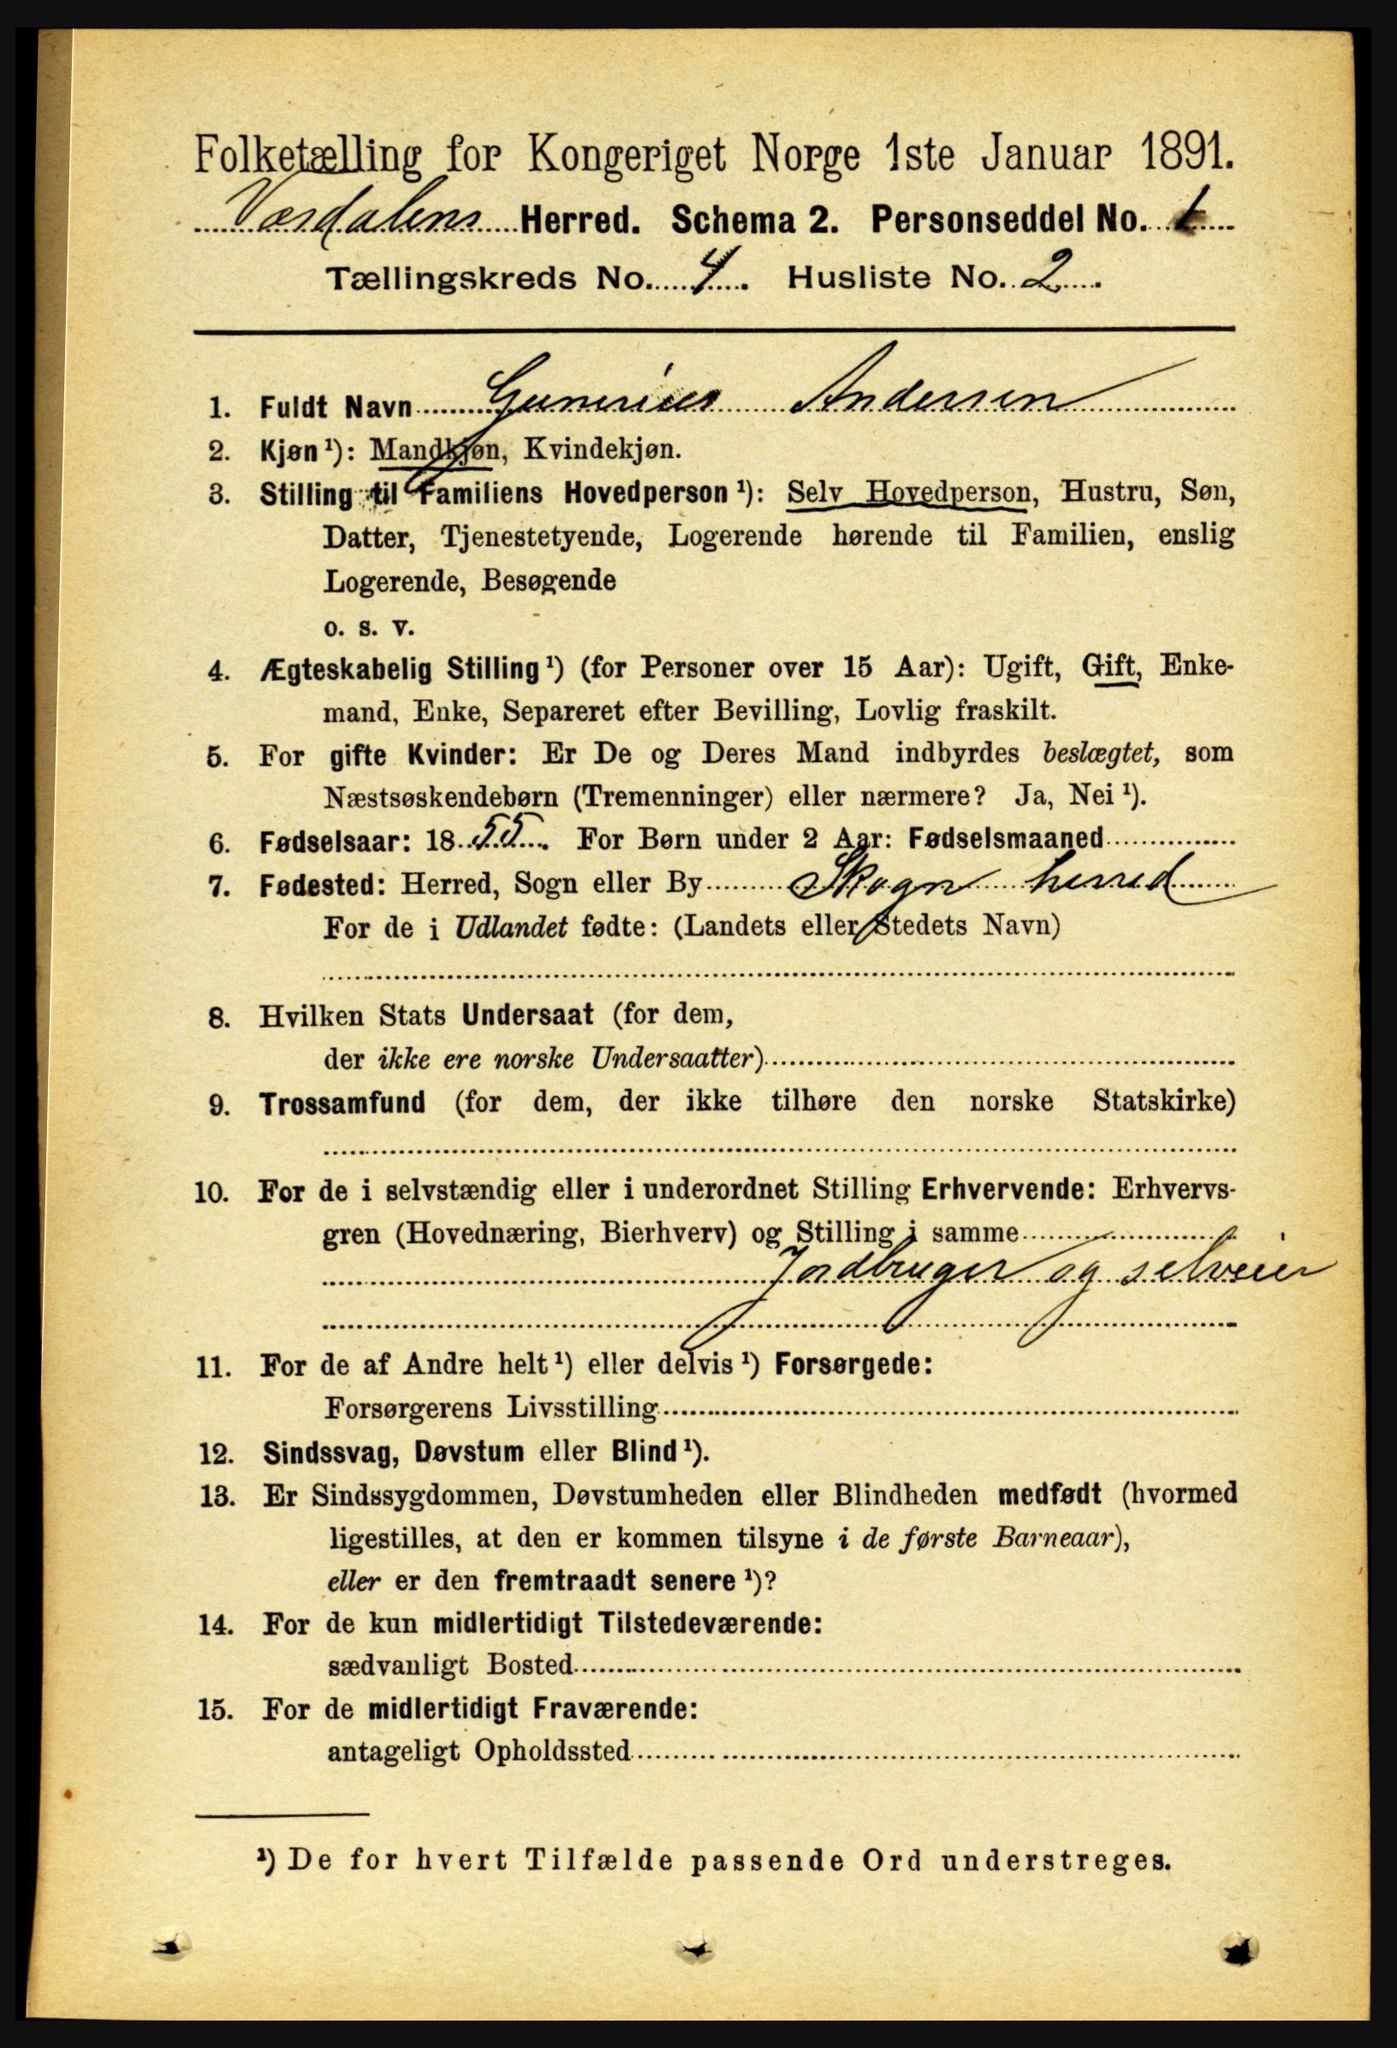 Folketælling for Kongeriget Norge 1ste Januar 1891.
Værdalens Herred. Schema 2. Personseddel No. 1
Tællingskreds No. 4. Husliste No. 2.
1. Fuldt Navn Gunerius Andersen
2. Kjøn ¹): Mandkjøn, Kvindekjøn.
3. Stilling til Familiens Hovedperson ¹): Selv Hovedperson, Hustru, Søn,
Datter, Tjenestetyende, Logerende hørende til Familien, enslig
Logerende, Besøgende
o. s. v.
4. Ægteskabelig Stilling ¹) (for Personer over 15 Aar): Ugift, Gift, Enke-
mand, Enke, Separeret efter Bevilling, Lovlig fraskilt.
5. For gifte Kvinder: Er De og Deres Mand indbyrdes beslægtet, som
Næstsøskendebørn (Tremenninger) eller nærmere? Ja, Nei ¹).
6. Fødselsaar: 1855. For Børn under 2 Aar: Fødselsmaaned
7. Fødested: Herred, Sogn eller By Skogn herred
For de i Udlandet fødte: (Landets eller Stedets Navn)
8. Hvilken Stats Undersaat (for dem,
der ikke ere norske Undersaatter)
9. Trossamfund (for dem, der ikke tilhøre den norske Statskirke)
10. For de i selvstændig eller i underordnet Stilling Erhvervende: Erhvervs-
gren (Hovednæring, Bierhverv) og Stilling i samme
Jordbruger og selveier
11. For de af Andre helt ¹) eller delvis ¹) Forsørgede:
Forsørgerens Livsstilling
12. Sindssvag, Døvstum eller Blind ¹).
13. Er Sindssygdommen, Døvstumheden eller Blindheden medfødt (hvormed
ligestilles, at den er kommen tilsyne i de første Barneaar),
eller er den fremtraadt senere ¹)?
14. For de kun midlertidigt Tilstedeværende:
sædvanligt Bosted
15. For de midlertidigt Fraværende:
antageligt Opholdssted
¹) De for hvert Tilfælde passende Ord understreges.